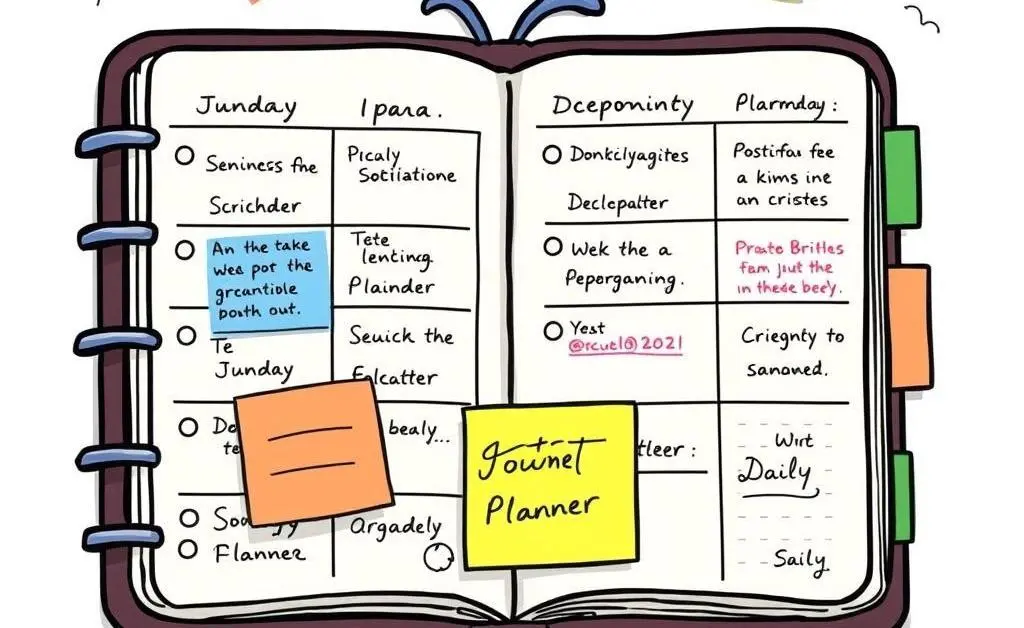 Junday
Ipara.
Seniness fne
Scrichder
Picaly
Sotliatione
An the take
wea pot the
grcantiole
pooth out.
Tete
lenting
Plainder
Te
Junday
Seuick the
Ealcatter
bealy...
Argadely
Flannez
Dcepominty
Plarmday:
Donkclyagites
Declepatter
Postifas fee
a kims ine
an cristes
Wek the a
Peporganing.
Prate Britles
fam jut the
in these beey.
Yest
@rcutl@2021
Criegnty to
sanoned.
Joutnet
Planner
tleer :
Wirt
Daily
Saily